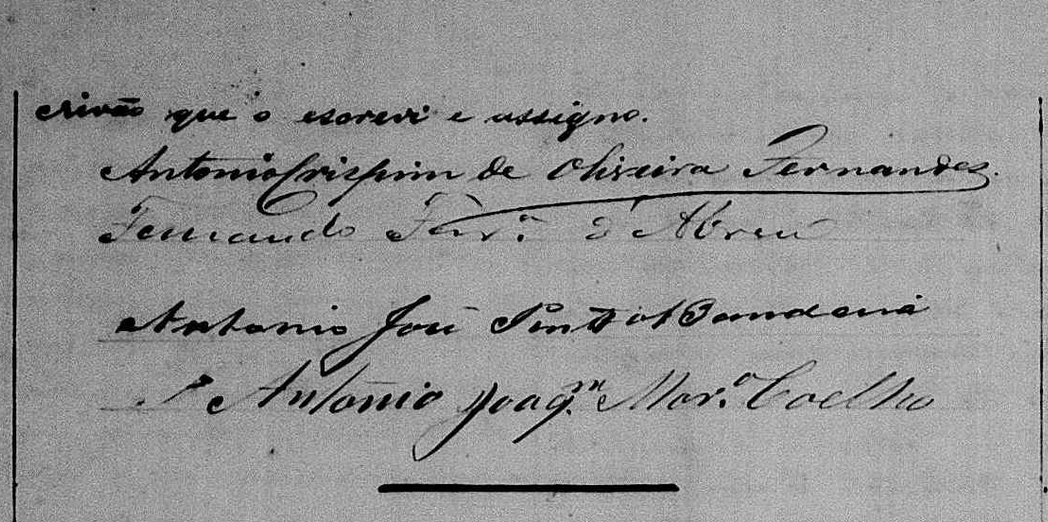 crivão que o escrevi e assigno.
Antonio Crispim de Oliveira Fernandes.
Fernando Ferr.ª d'Abreu
Antonio José Pinto Bandeira
P.e Antonio Joaq.m Mor.ª Coelho